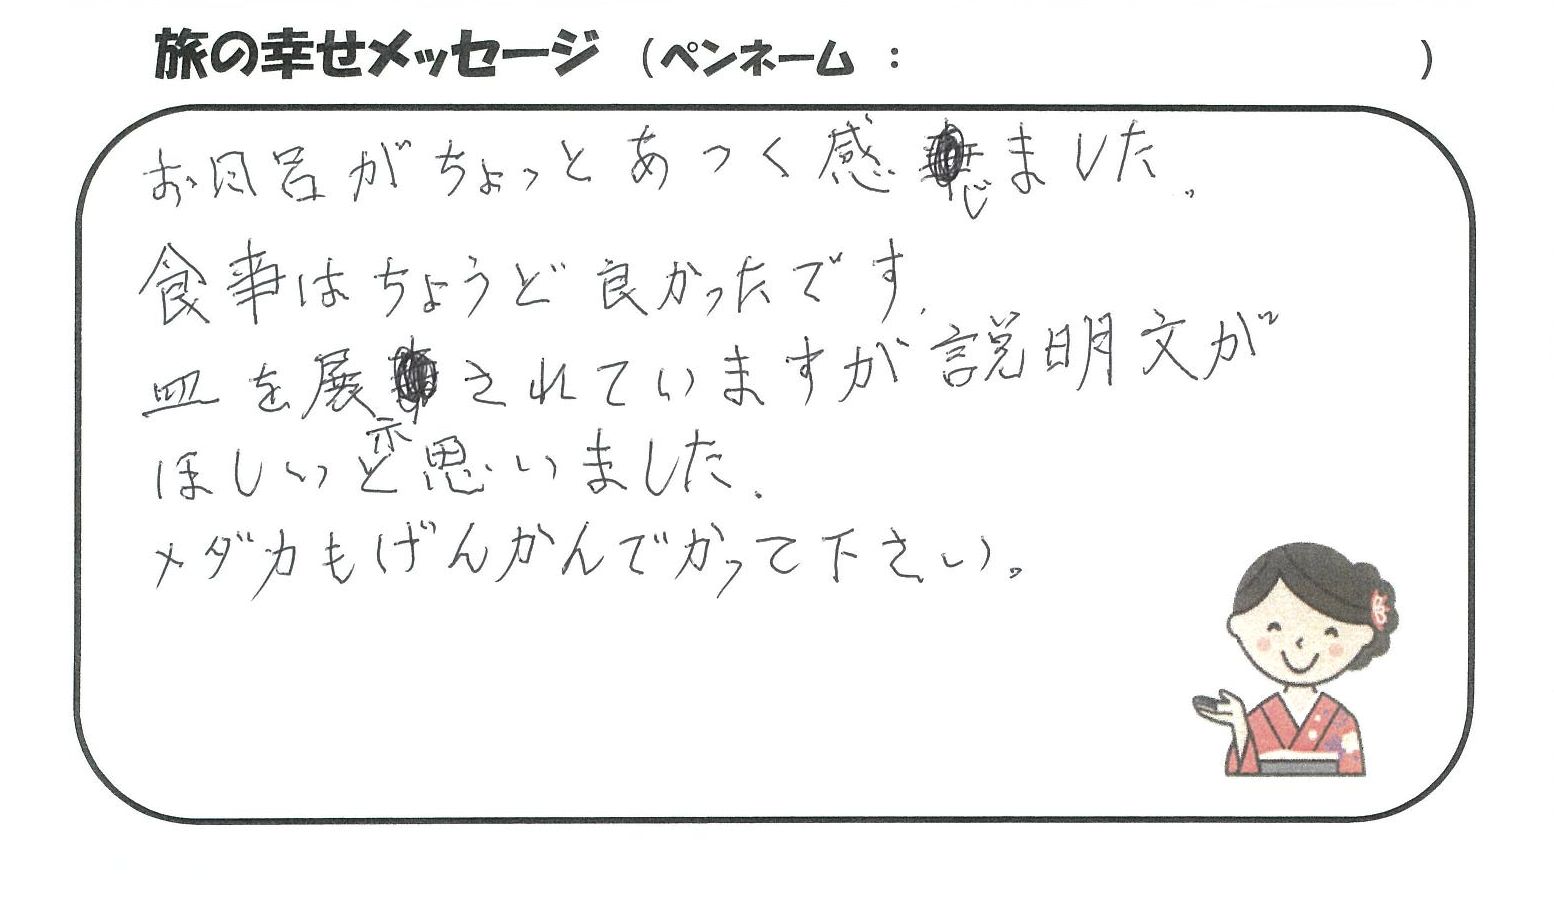 旅の幸せメッセージ (ペンネーム : )
お風呂がちょっとあつく感じました。
食事はちょうど良かったです。
皿を展示されていますが説明文が
ほしいと思いました。
メダカもげんかんでかって下さい。